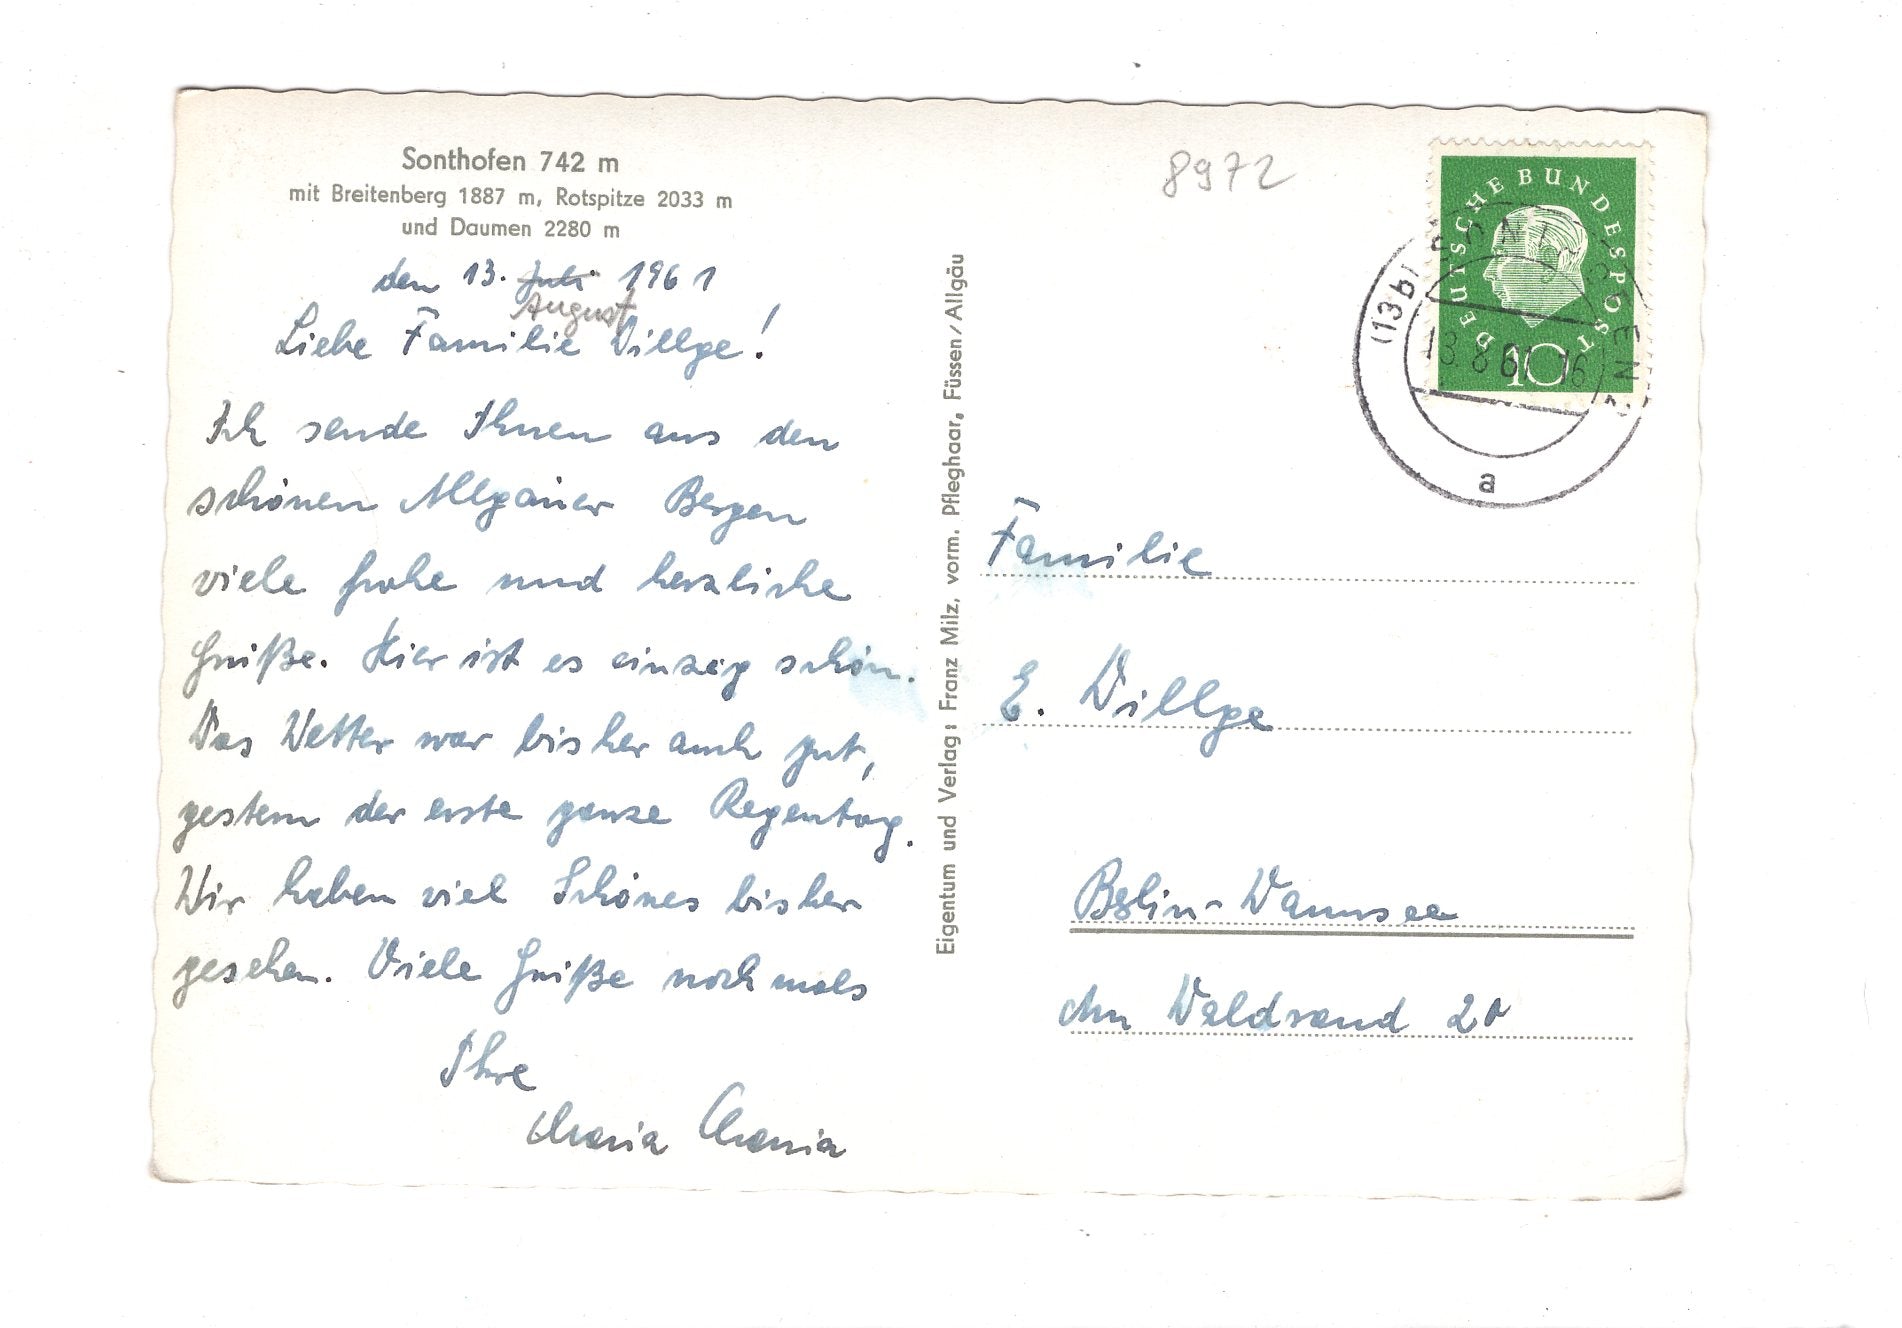 Sonthofen 742 m
mit Breitenberg 1887 m, Rotspitze 2033 m
und Daumen 2280 m
den 13. Juli 1961
August
Liebe Familie Dillge!
Ich sende Ihnen aus den
schönen Allgäuer Bergen
viele frohe und herzliche
Grüße. Hier ist es einzig schön.
Das Wetter war bisher auch gut,
gestern der erste ganze Regentag.
Wir haben viel Schönes bisher
gesehen. Viele Grüße nochmals
Ihre
Maria
Eigentum und Verlag: Franz Milz, vorm. Pfleghaar, Füssen/Allgäu
8972
DEUTSCHE BUNDESPOST
10
(13b) SONTHOFEN
13.8.61 16
a
Familie
E. Dillge
Berlin-Wannsee
Am Waldrand 20